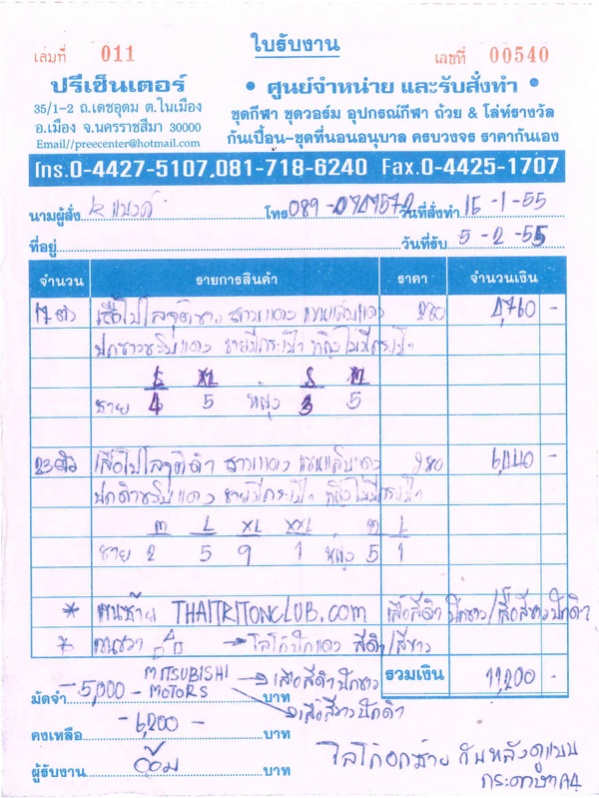 เล่มที่ 011 ใบรับงาน เลขที่ 00540
ปรีเซ็นเตอร์ • ศูนย์จำหน่าย และรับสั่งทำ •
35/1-2 ถ.เดชอุดม ต.ในเมือง ชุดกีฬา ชุดวอร์ม อุปกรณ์กีฬา ถ้วย & โล่ห์รางวัล
อ.เมือง จ.นครราชสีมา 30000 กันเปื้อน-ชุดที่นอนอนุบาล ครบวงจร ราคากันเอง
Email//preecenter@hotmail.com
โทร.0-4427-5107,081-718-6240 Fax.0-4425-1707
นามผู้สั่ง โทร วันที่สั่งทำ 15-1-55
ที่อยู่ วันที่รับ 5-2-55
จำนวน รายการสินค้า ราคา จำนวนเงิน
17 ตัว เสื้อโปโลจุติขาว สาบแดง แขนแถบแดง 280 4,760 -
ปกขาวขลิบแดง ชายมีกระเป๋า หญิงไม่มีกระเป๋า
L XL S M
ชาย 4 5 หญิง 3 5
23 ตัว เสื้อโปโลจุติดำ สาบแดง แขนแถบแดง 280 6,440 -
ปกดำขลิบแดง ชายมีกระเป๋า หญิงไม่มีกระเป๋า
M L XL XXL M L
ชาย 2 5 9 1 หญิง 5 1
* แขนซ้าย THAITRITONCLUB.COM เสื้อสีดำ ปักขาว/เสื้อสีขาวปักดำ
* แขนขวา → โลโก้ปักแดง สีดำ/สีขาว
MITSUBISHI MOTORS → เสื้อสีดำปักขาว
→ เสื้อสีขาวปักดำ
รวมเงิน 11,200 -
มัดจำ 5,000 - บาท
คงเหลือ 6,200 - บาท
ผู้รับงาน อ้อม บาท
โลโก้อกซ้าย กับหลังดูแบบ
กระดาษ A4